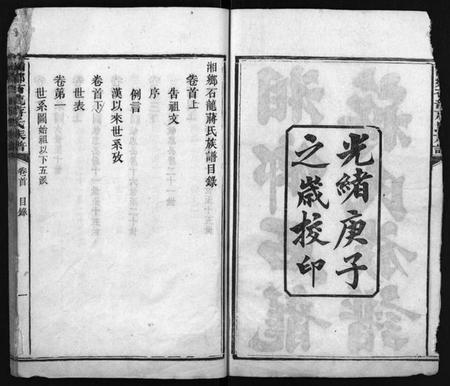 光緒庚子
之歲校印
湘鄉石龍蔣氏族譜目錄
卷首上
告祖文
序三
例言
漢以來世系攷
卷首下
世表
卷第一
世系圖始祖以下五派
卷首 目錄
一